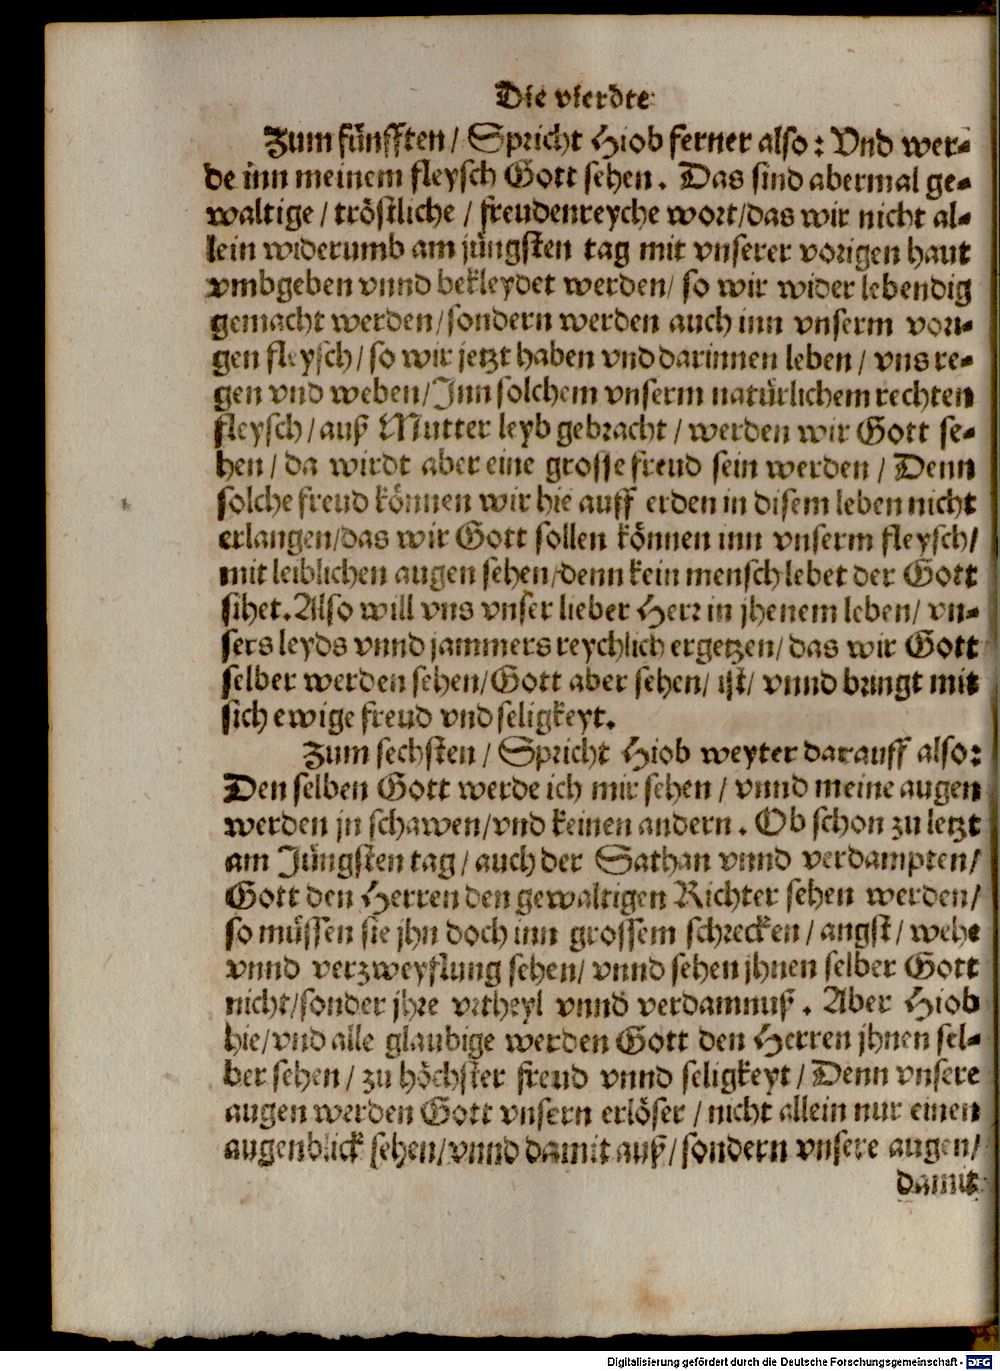 Die vierdte
Zum fünfften / Spricht Hiob ferner also: Vnd wer-
de inn meinem fleysch Gott sehen. Das sind abermal ge-
waltige / tröstliche / freudenreyche wort/das wir nicht al-
lein widerumb am jüngsten tag mit vnserer vorigen haut
vmbgeben vnnd bekleydet werden/ so wir wider lebendig
gemacht werden/sondern werden auch inn vnserm vori-
gen fleysch/ so wir jetzt haben vnd darinnen leben / vns re-
gen vnd weben/Inn solchem vnserm natürlichem rechten
fleysch/ auß Mutter leyb gebracht / werden wir Gott se-
hen / da wirdt aber eine grosse freud sein werden / Denn
solche freud können wir hie auff erden in disem leben nicht
erlangen/das wir Gott sollen können inn vnserm fleysch/
mit leiblichen augen sehen/denn kein mensch lebet der Gott
sihet. Also will vns vnser lieber Herr in jhenem leben/ vn-
sers leyds vnnd jammers reychlich ergetzen/ das wir Gott
selber werden sehen/Gott aber sehen/ ist/ vnnd bringt mit
sich ewige freud vnd seligkeyt.
Zum sechsten / Spricht Hiob weyter darauff also:
Den selben Gott werde ich mir sehen / vnnd meine augen
werden jn schawen/vnd keinen andern. Ob schon zu letzt
am Jüngsten tag/ auch der Sathan vnnd verdampten/
Gott den Herren den gewaltigen Richter sehen werden/
so müssen sie jhn doch inn grossem schrecken / angst/ wehe
vnnd verzweyflung sehen/ vnnd sehen jhnen selber Gott
nicht/sonder jhre vrtheyl vnnd verdamnuß. Aber Hiob
hie/vnd alle glaubige werden Gott den Herren jhnen sel-
ber sehen / zu höchster freud vnnd seligkeyt / Denn vnsere
augen werden Gott vnsern erlöser / nicht allein nur einen
augenblick sehen/vnnd damit auß/ sondern vnsere augen/
damit
Digitalisierung gefördert durch die Deutsche Forschungsgemeinschaft - DFG